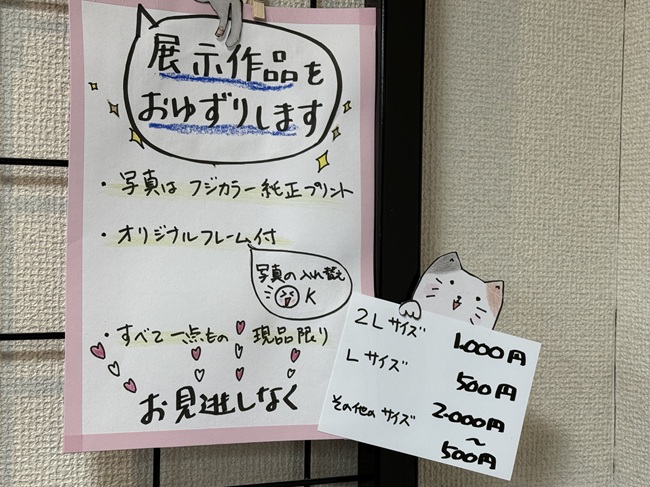 展示作品を
おゆずりします
・写真は フジカラー純正プリント
・オリジナルフレーム付
写真の入れ替え
OK
・すべて一点もの 現品限り
お見逃しなく
2Lサイズ 1,000円
Lサイズ 500円
その他のサイズ 2,000円
〜
500円